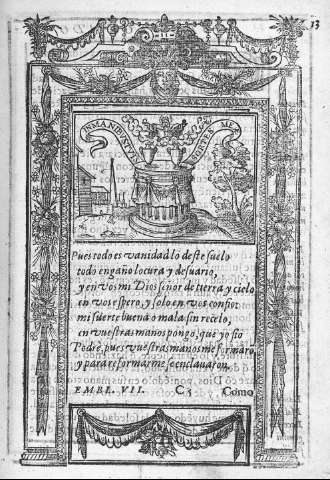 13
IN MANIBVS TVIS SORTES MEÆ
Pues todo es vanidad lo deste suelo
todo engaño locura y desuario,
y en vos mi Dios señor de tierra y cielo
en vos espero, y solo en vos confio:
mi suerte buena o mala sin reçelo,
en vuestras manos pongo, que yo fio
Podre, pues vuestras manos me formarõ
y para reformarme se enclauaron.
EMBL. VII. C 5 Como